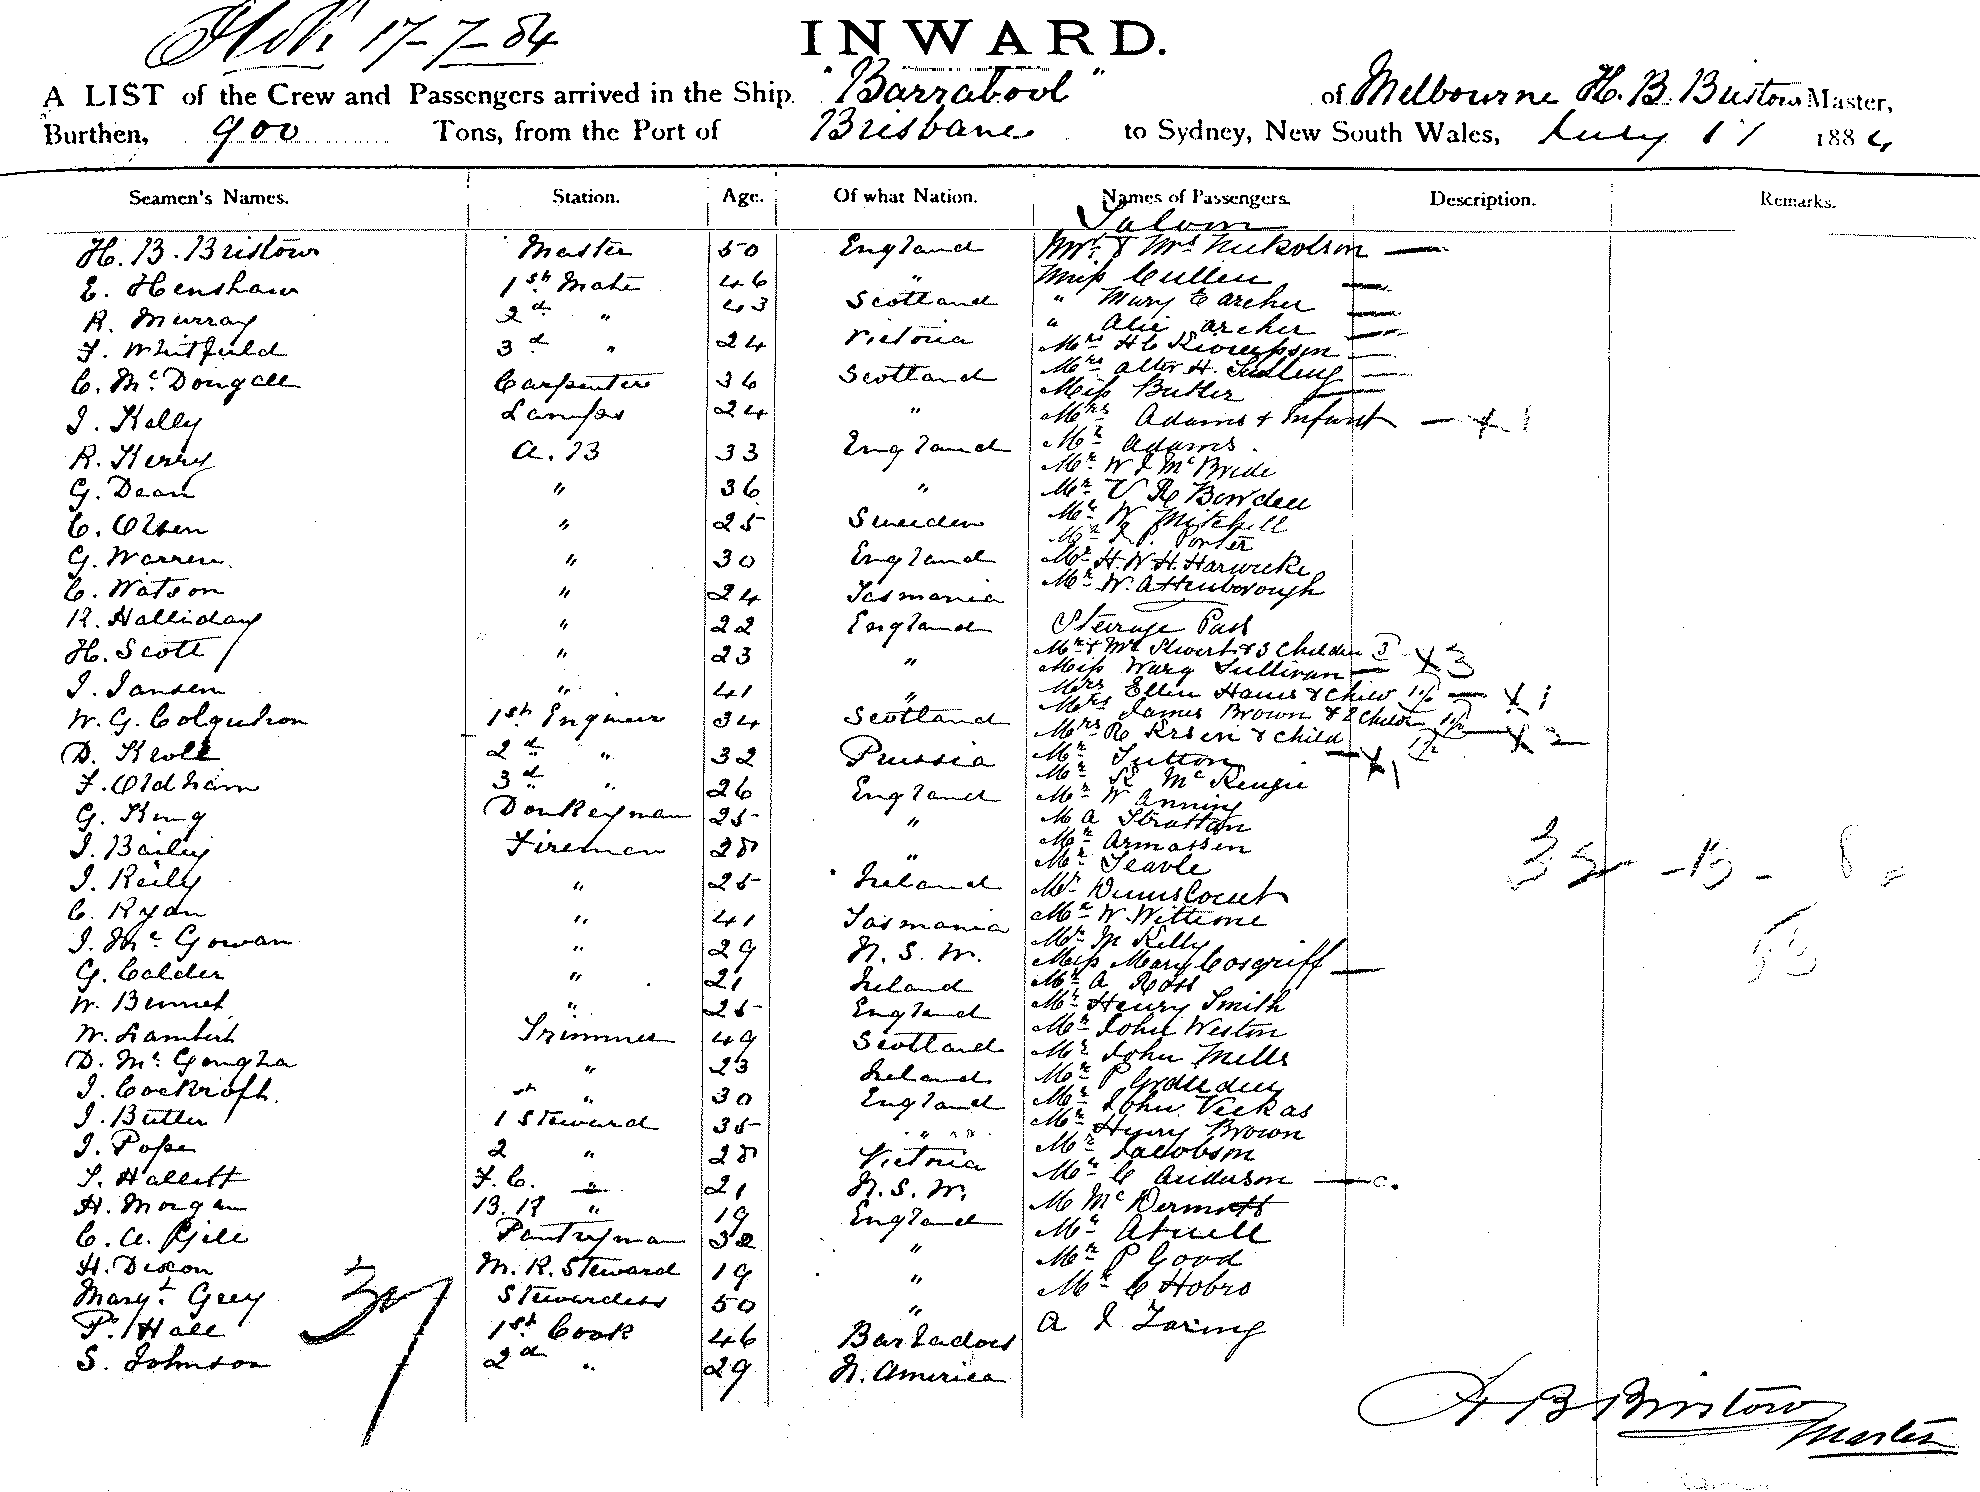 17-7-84
INWARD.
A LIST of the Crew and Passengers arrived in the Ship "Barrabool" of Melbourne H. B. Bristow Master,
Burthen, 900 Tons, from the Port of Brisbane to Sydney, New South Wales, July 17 1884
Seamen's Names. Station. Age. Of what Nation. Names of Passengers. Description. Remarks.
Saloon
H. B. Bristow Master 50 England Mr. & Mrs Nickolson —
E. Henshaw 1st Mate 46 " Miss Cullen —
R. Murray 2d " 43 Scotland " Mary E Archer —
F. Whitfield 3d " 24 Victoria " Alic Archer —
C. McDougall Carpenter 36 Scotland Mrs H C —
Mrs Alter H. —
Miss Butler —
J. Kelly Lamps 24 " Mrs Adams & Infant — + 1
R. Kerry A.B 33 England Mr Adams.
Mr W J McBride
G. Dean " 36 " Mr V R Bowden
C. Olsen " 25 Sweeden Mr W Mitchell
Mr J P. Porter
G. Warren " 30 England Mr H. W. H. Harwicke
C. Watson " 24 Tasmania Mr W. Attenborough
R. Halliday " 22 England Steerage Pass
H. Scott " 23 " Mr & Mrs Stewart & 3 Children 3 X 3
Miss Mary Sullivan —
J. Jansen " 41 " Mrs Ellen Hawes & Child 1½ — X 1
W. G. Colquhoun 1st Engineer 34 Scotland Mrs James Brown & 2 Childn — X 2
Mrs R & Child — X 1
D. Kroll 2d " 32 Prussia Mr Sutton
F. Oldham 3d " 26 England Mr K McKenzie
Mr W Anning
G. King Donkeyman 25 " M A Strattan
J. Baily Fireman 28 " Mr Armassen
Mr Seavle
J. Reily " 25 Ireland Mr
C. Ryan " 41 Tasmania Mr W.
J. McGowan " 29 N. S. W. Mr M Kelly
Miss Mary Cosgriff —
G. Calder " 21 Ireland Mr A Ross
W. Bennet " 25 England Mr Henry Smith
W. Lambert Trimmer 49 Scotland Mr John Weston
D. " 23 Ireland Mr John Mills
J. Cockroft. " 30 England Mr P
Mr John Veekas
J. Butler 1 Steward 35 " Mr Henry Brown
J. Pope 2 " 28 Victoria Mr Jacobson
S. Hallett F. C. " 21 N. S. W. Mr C Anderson — c.
H. Morgan B. R " 19 England M McDermott
C. A. Gill Pantryman 32 " Mr Atwell
H. Dixon M. R. Steward 19 " Mr P Good
Margt. Grey Stewardess 50 " Mr C Hobro
P. Hall 1st Cook 46 Barbadoes A J Loring
S. Johnson 2d " 29 N. America
37
H B Bristow
Master